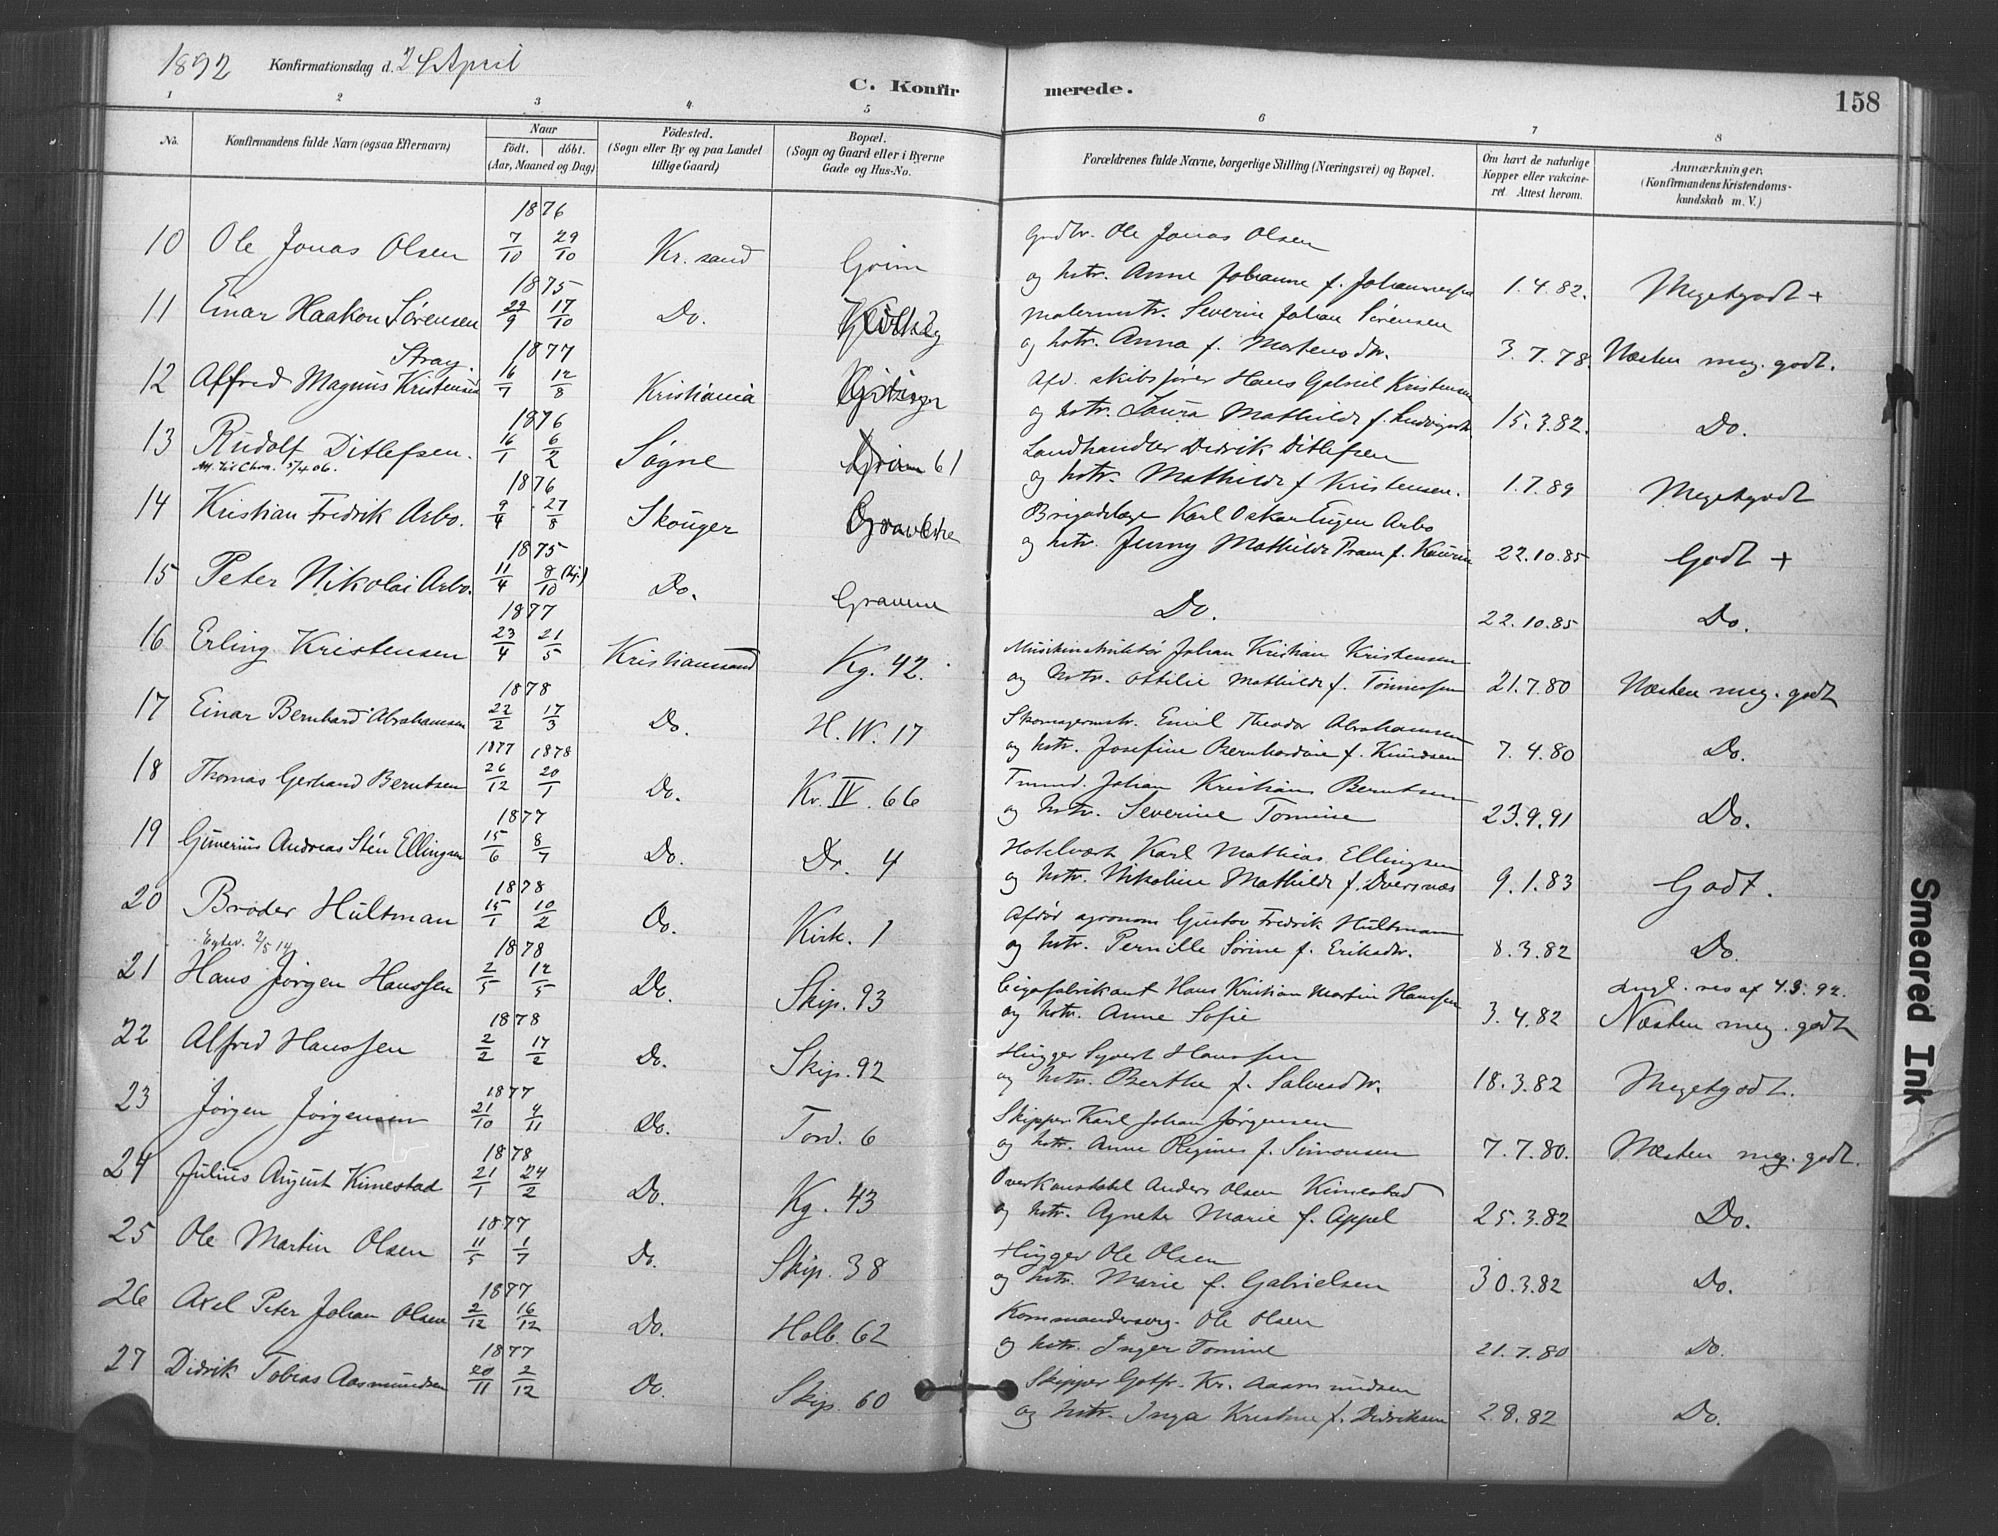 1892 Konfirmationsdag d. 24 April
C. Konfirmerede.
158
1 2 3 4 5 6 7 8
No. Konfirmandens fulde Navn (ogsaa Efternavn) Naar født. døbt. (Aar, Maaned og Dag) Fødested. (Sogn eller By og paa Landet tillige Gaard) Bopæl. (Sogn og Gaard eller i Byerne Gade og Hus-No. Forældrenes fulde Navne, borgerlige Stilling (Næringsvei) og Bopæl. Om havt de naturlige Kopper eller vakcineret. Attest herom. Anmærkninger. (Konfirmandens Kristendomskundskab m. V.)
1876
10 Ole Jonas Olsen 7/10 29/10 Kr. sand Grim Ole Jonas Olsen
og hstr. Anne Johanne f. 1.4.82. Megetgodt +
1875
11 Einar Haakon Sørensen 22/9 17/10 Do. Malermstr. Severin Johan Sørensen
og hstr. Anna f. Mortensdtr. 3.7.78. Næsten meg. godt.
Stray 1877
12 Alfred Magnus Kristensen 16/7 12/8 Kristiania Afd. skibsfører Hans Gabriel Kristensen
og hstr. Laura Mathilde f. Ludvigsdtr. 15.3.82. Do.
1876
13 Rudolf Ditlefsen. 16/1 6/2 Søgne Grim 61 Landhandler Didrik Ditlefsen
Att. til Chra. 5/4 06. og hstr. Mathilde f Kristensen. 1.7.89 Megetgodt
1876
14 Kristian Fredrik Arbo. 9/4 27/8 Skouger Brigadelæge Karl Oskar Eugen Arbo
og hstr. Jenny Mathilde Pram f. Kaurin 22.10.85 Godt +
1875
15 Peter Nikolai Arbo. 11/4 8/10 Do. Gravene Do. 22.10.85 Do.
1877
16 Erling Kristensen 23/4 21/5 Kristianssand Kg. 42. Musikinstruktør Johan Kristian Kristensen
og hstr. Ottilie Mathilde f. Tønnessen 21.7.80 Næsten meg. godt
1878
17 Einar Bernhard Abrahamsen 22/2 17/3 Do. H.W. 17 Skomagermstr. Emil Theodor Abrahamsen
og hstr. Josefine Bernhardine f. Knudsen 7.4.80 Do.
1877 1878
18 Thomas Gerhard Berntsen 26/12 20/1 Do. Kv. IV. 66 Tmmd. Johan Kristian Berntsen
og hstr. Severine Tomine 23.9.91 Do.
1877
19 Gunerius Andreas Stén Ellingsen 15/6 8/7 Do. Dr. 4 Hotelvært Karl Mathias Ellingsen
og hstr. Nikoline Mathilde f. Dversnæs 9.1.83 Godt.
1878
20 Broder Hultman 15/1 10/2 Do. Kirk. 1 Afdød agronom Gustav Fredrik Hultman
og hstr. Pernille Sørine f. Eriksdtr. 8.3.82 Do.
2/5 14 1878
21 Hans Jørgen Hanssen 2/5 12/5 Do. Skip. 93 Cigarfabrikant Hans Kristian Martin Hanssen
og hstr. Anne Sofie 3.4.82 Næsten meg. godt
1878
22 Alfred Hanssen 2/2 17/2 Do. Skip. 92 Hugger Syvert Hanssen
og hstr. Berthe f. Salvesdtr. 18.3.82 Megetgodt.
1877
23 Jørgen Jørgensen 21/10 4/11 Do. Tord. 6 Skipper Karl Johan Jørgensen
og hstr. Anne Regine f. Simonsen 7.7.80. Næsten meg. godt.
1878
24 Julius August Kimestad 21/1 24/2 Do. Kg. 43 Overkonstabel Anders Olsen Kimestad
og hstr. Agnete Marie f. Appel 25.3.82 Do.
1877
25 Ole Martin Olsen 11/5 1/7 Do. Skip. 38 Hugger Ole Olsen
og hstr. Marie f. Gabrielsen 30.3.82 Do.
1877
26 Axel Peter Johan Olsen 2/12 16/12 Do. Holb. 62 Kommandersrg. Ole Olsen
og hstr. Inger Tomine 21.7.80 Do.
1877
27 Didrik Tobias Aasmundsen 20/11 2/12 Do. Skip. 60 Skipper Gotfr. Kr. Aasmundsen
og hstr. Inga Kristine f. Didriksen 2.8.82 Do.
Smeared Ink